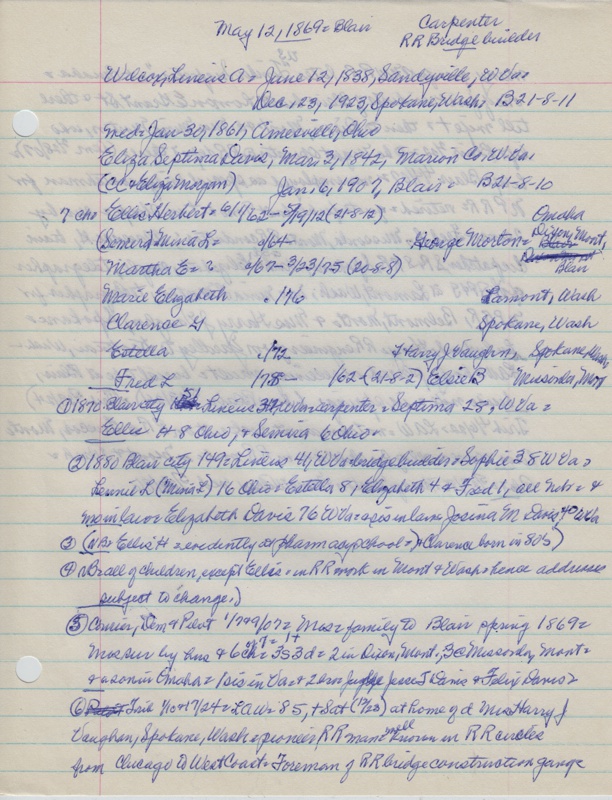 May 12, 1869 = Blair
Carpenter
RR Bridge builder
Wilcox, Lineus A = June 12, 1838, Sandyville, W Va =
Dec 23, 1923, Spokane, Wash B21-8-11
med = Jan 30, 1861, Amesville, Ohio
Eliza Septima Davis, Mar 3, 1842, Marion Co, W Va
(CC & Eliza Morgan) Jan 6, 1907, Blair = B21-8-10
7 ch = Ellis Herbert = 6/1/62 - 3/9/12 (21-8-12) Omaha
(Somers) Minia L = 2/64 - George Morton = Dixon, Mont,
Blair
Martha E = ? 2/67 - 3/23/75 (20-8-8)
Marie Elizabeth . 1/76 Lamont, Wash
Clarence Spokane, Wash
Estella . 1/72 Harry J Vaughn, Spokane, Wash
Fred L 1/78 - 1/62 = (21-8-2) Elsie B Missoula, Mont
① 1870 Blair city Lineius W Va = carpenter = Septima 28, W Va =
Ellis H 8 Ohio, + Semira 6 Ohio =
② 1880 Blair city 149 = Lineus 41, W Va = bridge builder = Sophie 38 W Va =
Lennie L (Minia L) 16 Ohio = Estella 8, Elizabeth 4 & Fred 1, all Neb = &
mo in law = Elizabeth Davis 76 W Va = & sis in law = Josina M Davis 40 W Va
③ (NB = Ellis H = evidently at pharmacy school = ) Clarence born in 80's)
④ NB all of children, except Ellis = in RR work in Mont & Wash = hence addresses
subject to change.)
⑤ Courier, Dem & Pilot 1/7 & 9/07 = Mrs = family to Blair spring 1869 =
Mrs sur by hus & 6 ch = 3s 3d = 2 in Dixon, Mont, 3 @ Missoula, Mont =
& a son in Omaha = 1 sis in Va & 2 bro Jesse T Davis & Felix Davis =
⑥ Trib 1/10 & 17/24 = LAW = 85, + Sat (12/23) at home of d Mrs Harry J
Vaughan, Spokane, Wash = pioneer RR man = well known in RR circles
from Chicago to West Coast = Foreman of RR bridge construction gangs